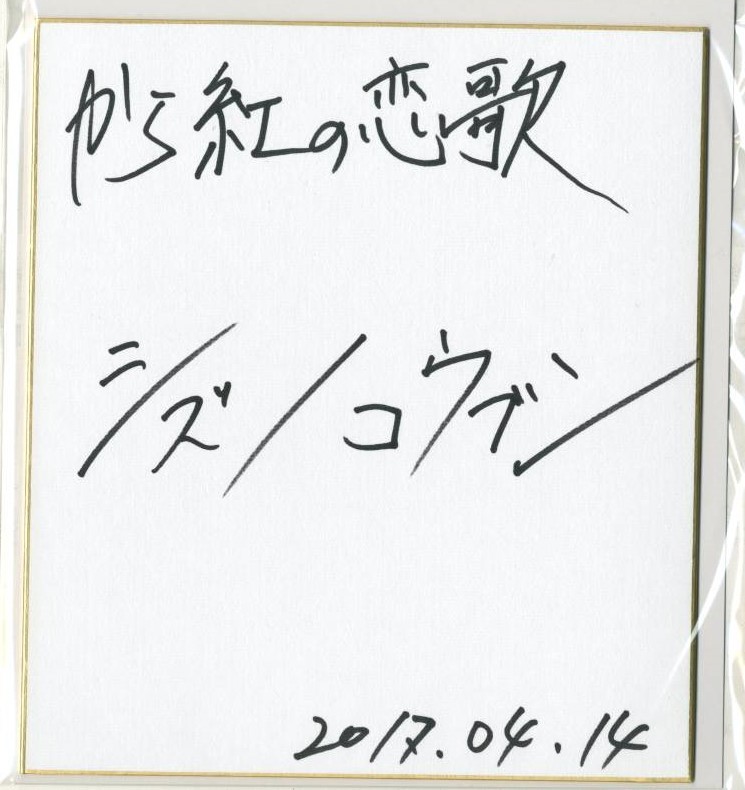 から紅の恋歌
シズノコウブン
2017.04.14